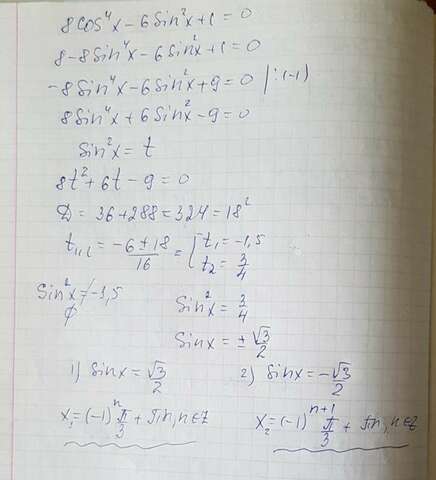 8cos⁴x - 6sin²x + 1 = 0
8 - 8sin⁴x - 6sin²x + 1 = 0
-8sin⁴x - 6sin²x + 9 = 0 | :(-1)
8sin⁴x + 6sin²x - 9 = 0
sin²x = t
8t² + 6t - 9 = 0
D = 36 + 288 = 324 = 18²
t₁,₂ = (-6 ± 18)/16 = [ t₁ = -1,5
t₂ = 3/4
sin²x ≠ -1,5 sin²x = 3/4
∅ sinx = ± √3/2
1) sinx = √3/2 2) sinx = -√3/2
x₁ = (-1)ⁿ π/3 + πn, n∈Z x₂ = (-1)ⁿ⁺¹ π/3 + πn, n∈Z